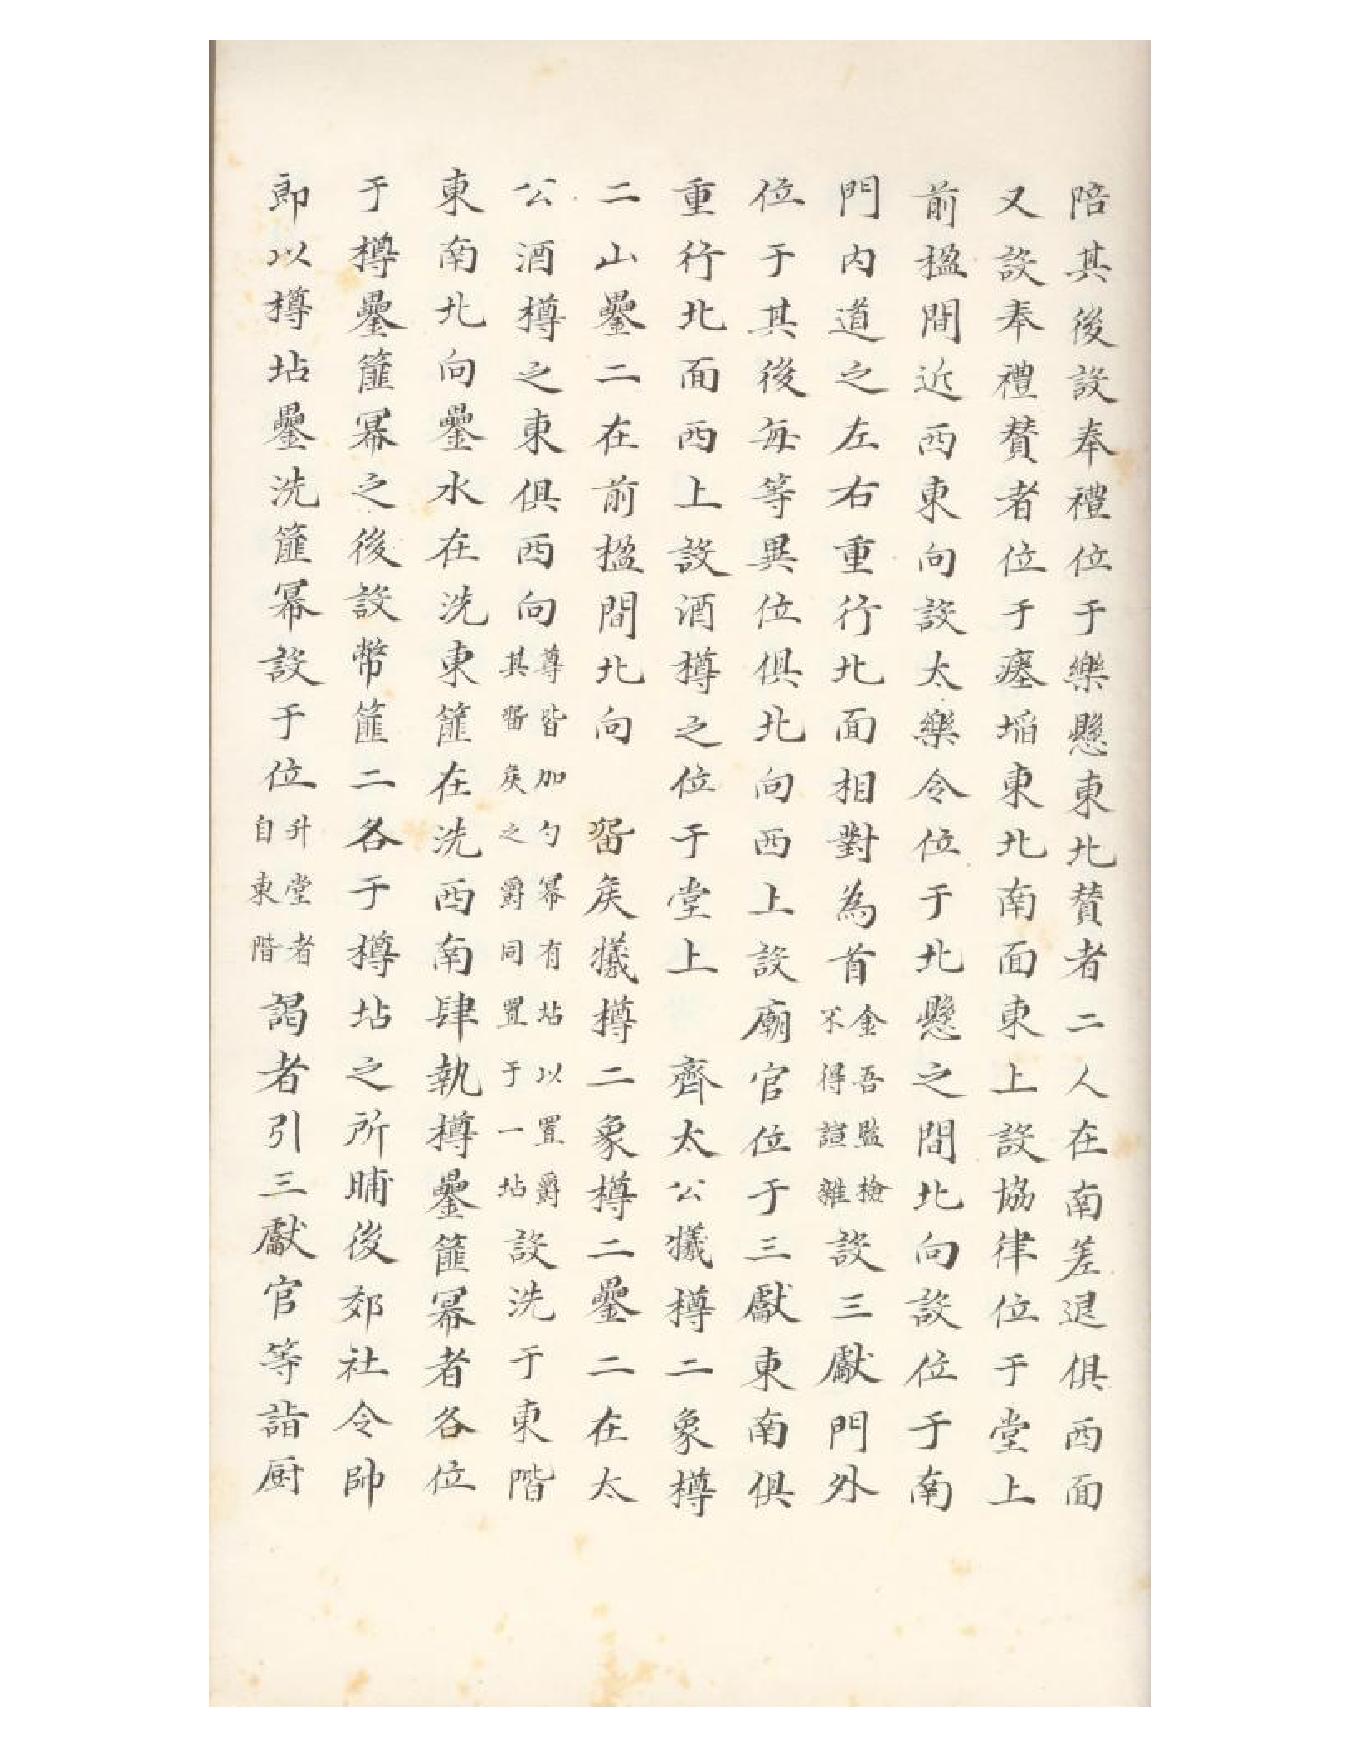 陪其後設奉禮位于樂懸東北贊者二人在南差退俱西面
又設奉禮贊者位于瘞埳東北南面東上設協律位于堂上
前楹間近西東向設太樂令位于北懸之間北向設位于南
門内道之左右重行北面相對為首金吾監檢不得諠雜設三獻門外
位于其後每等異位俱北向西上設廟官位于三獻東南俱
重行北面西上設酒樽之位于堂上 齊太公犧樽二象樽
二山罍二在前楹間北向 留矦犧樽二象樽二罍二在太
公酒樽之東俱西向尊皆加勺冪有坫以置爵其留矦之爵同置于一坫設洗于東階
東南北向罍水在洗東篚在洗西南肆執樽罍篚冪者各位
于樽罍篚冪之後設幣篚二各于樽坫之所晡後郊社令帥
即以樽坫罍洗篚冪設于位升堂者自東階謁者引三獻官等詣厨